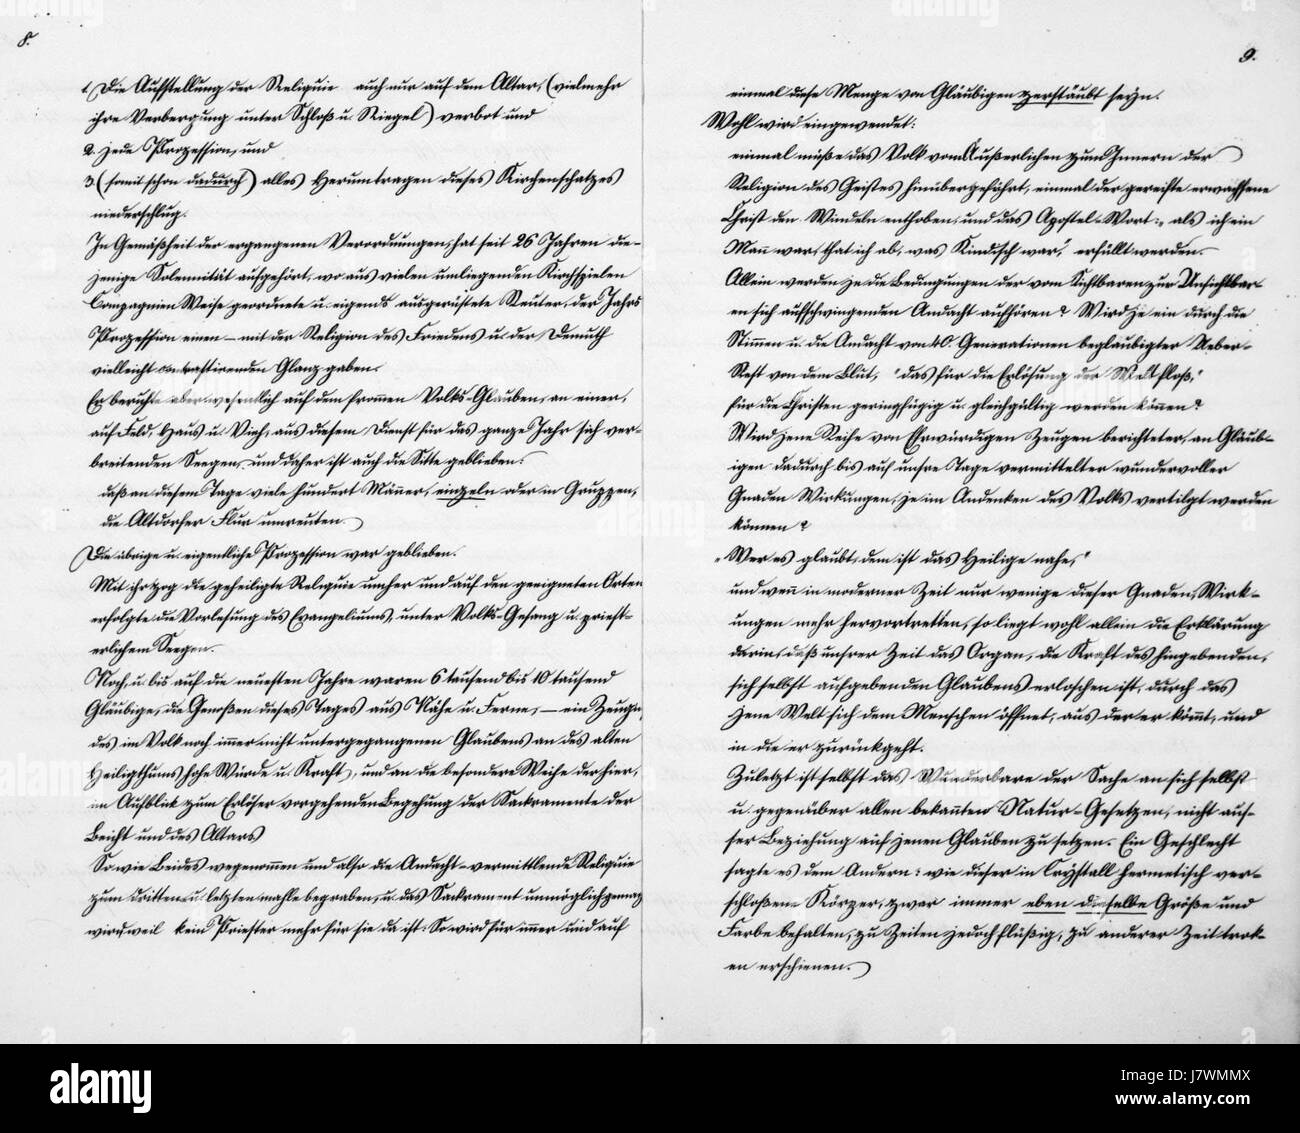 8.
1. Die Aufstellung der Reliquie auch nur auf dem Altar, (vielmehr
ihre Verbergung unter Schloß u. Riegel) verbot und
2. jede Prozession, und
3. (somit schon dadurch) alles Herumtragen dieses Kirchenschatzes
niederschlug.
In Gemäßheit der ergangenen Verordnungen, hat seit 26 Jahren die-
jenige Solemnität aufgehört, wo aus vielen umliegenden Kirchspielen
Compagnien Weise geordnete u. eigends ausgerüstete Reuter, der Jahrs
Prozession einen — mit der Religion des Friedens u. der Demuth
vielleicht contrastirenden Glanz gaben.
Er beruhte aber wesentlich auf dem frommen Volks-Glauben, an einen,
auf Feld, Haus u. Vieh, aus diesem Dienst für das ganze Jahr sich ver-
breitenden Seegen, und daher ist auch die Sitte geblieben:
daß an diesem Tage viele hundert Männer, einzeln oder in Gruppen,
die Altdorfer Flur umreuten.
Die übrige u. eigentliche Prozession war geblieben.
Mit ihr zog die geheiligte Reliquie umher und auf den geeigneten Orten
erfolgte die Vorlesung des Evangeliums, unter Volks-Gesang u. priest-
erlichem Seegen.
Noch, u. bis auf die neuesten Jahre waren 6 tausend bis 10 tausend
Gläubige, die Genoßen dieses Tages aus Nähe u. Ferne, — ein Zeugn
des im Volk noch immer nicht untergegangenen Glaubens an des alten
Heiligthums hohe Würde u. Kraft, und an die besondere Weihe der hier,
im Aufblick zum Erlöser vorgehenden Begehung der Sackramente der
Beicht und des Altars
So wie Beides wegenommen und also die Andacht-vermittlende Reliquie
zum dritten u. letzten mahle begraben, u. das Sackrament unmöglich gemacht
wird, weil kein Priester mehr für sie da ist: So wird für immer und auf
9.
einmal diese Menge von Gläubigen zerstäubt seyn.
Wohl wird eingewendet:
einmal müße das Volk vom Äußerlichen zum Innern der
Religion des Geistes hinübergeführt, einmal der gereifte erwachsene
Christ den Windeln enthoben, und das Apostel-Wort: „als ich ein
Mann war, that ich ab, was Kindisch war," erfüllt werden.
Allein werden je die Bedingungen der vom Sichtbaren zur Unsichtbar-
en sich aufschwingenden Andacht aufhören? Wird je ein durch die
Stimmen u. die Andacht von 40. Generationen beglaubigter Ueber-
Rest von dem Blut, "das für die Erlösung der Welt floß,"
für die Christen geringfügig u. gleichgültig werden können?
Wird jene Reihe von Ehrwürdigen Zeugen berichteter, an Gläub-
igen dadurch bis auf unsre Tage vermittelter wundervoller
Gnaden Wirkungen, je im Andenken des Volks vertilgt werden
können?
„Wer es glaubt, dem ist das Heilige nahe,"
und wenn in moderner Zeit nur wenige dieser Gnaden, Wirk-
ungen mehr hervortretten, so liegt wohl allein die Erklärung
darin, daß unsrer Zeit das Organ, die Kraft des hingebenden,
sich selbst aufgebenden Glaubens erloschen ist, durch das
jene Welt sich dem Menschen öffnet, aus der er kömmt, und
in die er zurückgeht.
Zuletzt ist selbst das Wunderbare der Sache an sich selbst
u. gegenüber allen bekannten Natur-Gesetzen, nicht aus-
ser Beziehung auf jenen Glauben zu setzen. Ein Geschlecht
sagte es dem Andern: wie dieser in Crystall hermetisch ver-
schloßene Körper, zwar immer eben dieselbe Größe und
Farbe behalten, zu Zeiten jedoch flüßig, zu anderer Zeit trok-
en erschienen.
alamy
Image ID: J7WMMX
www.alamy.com